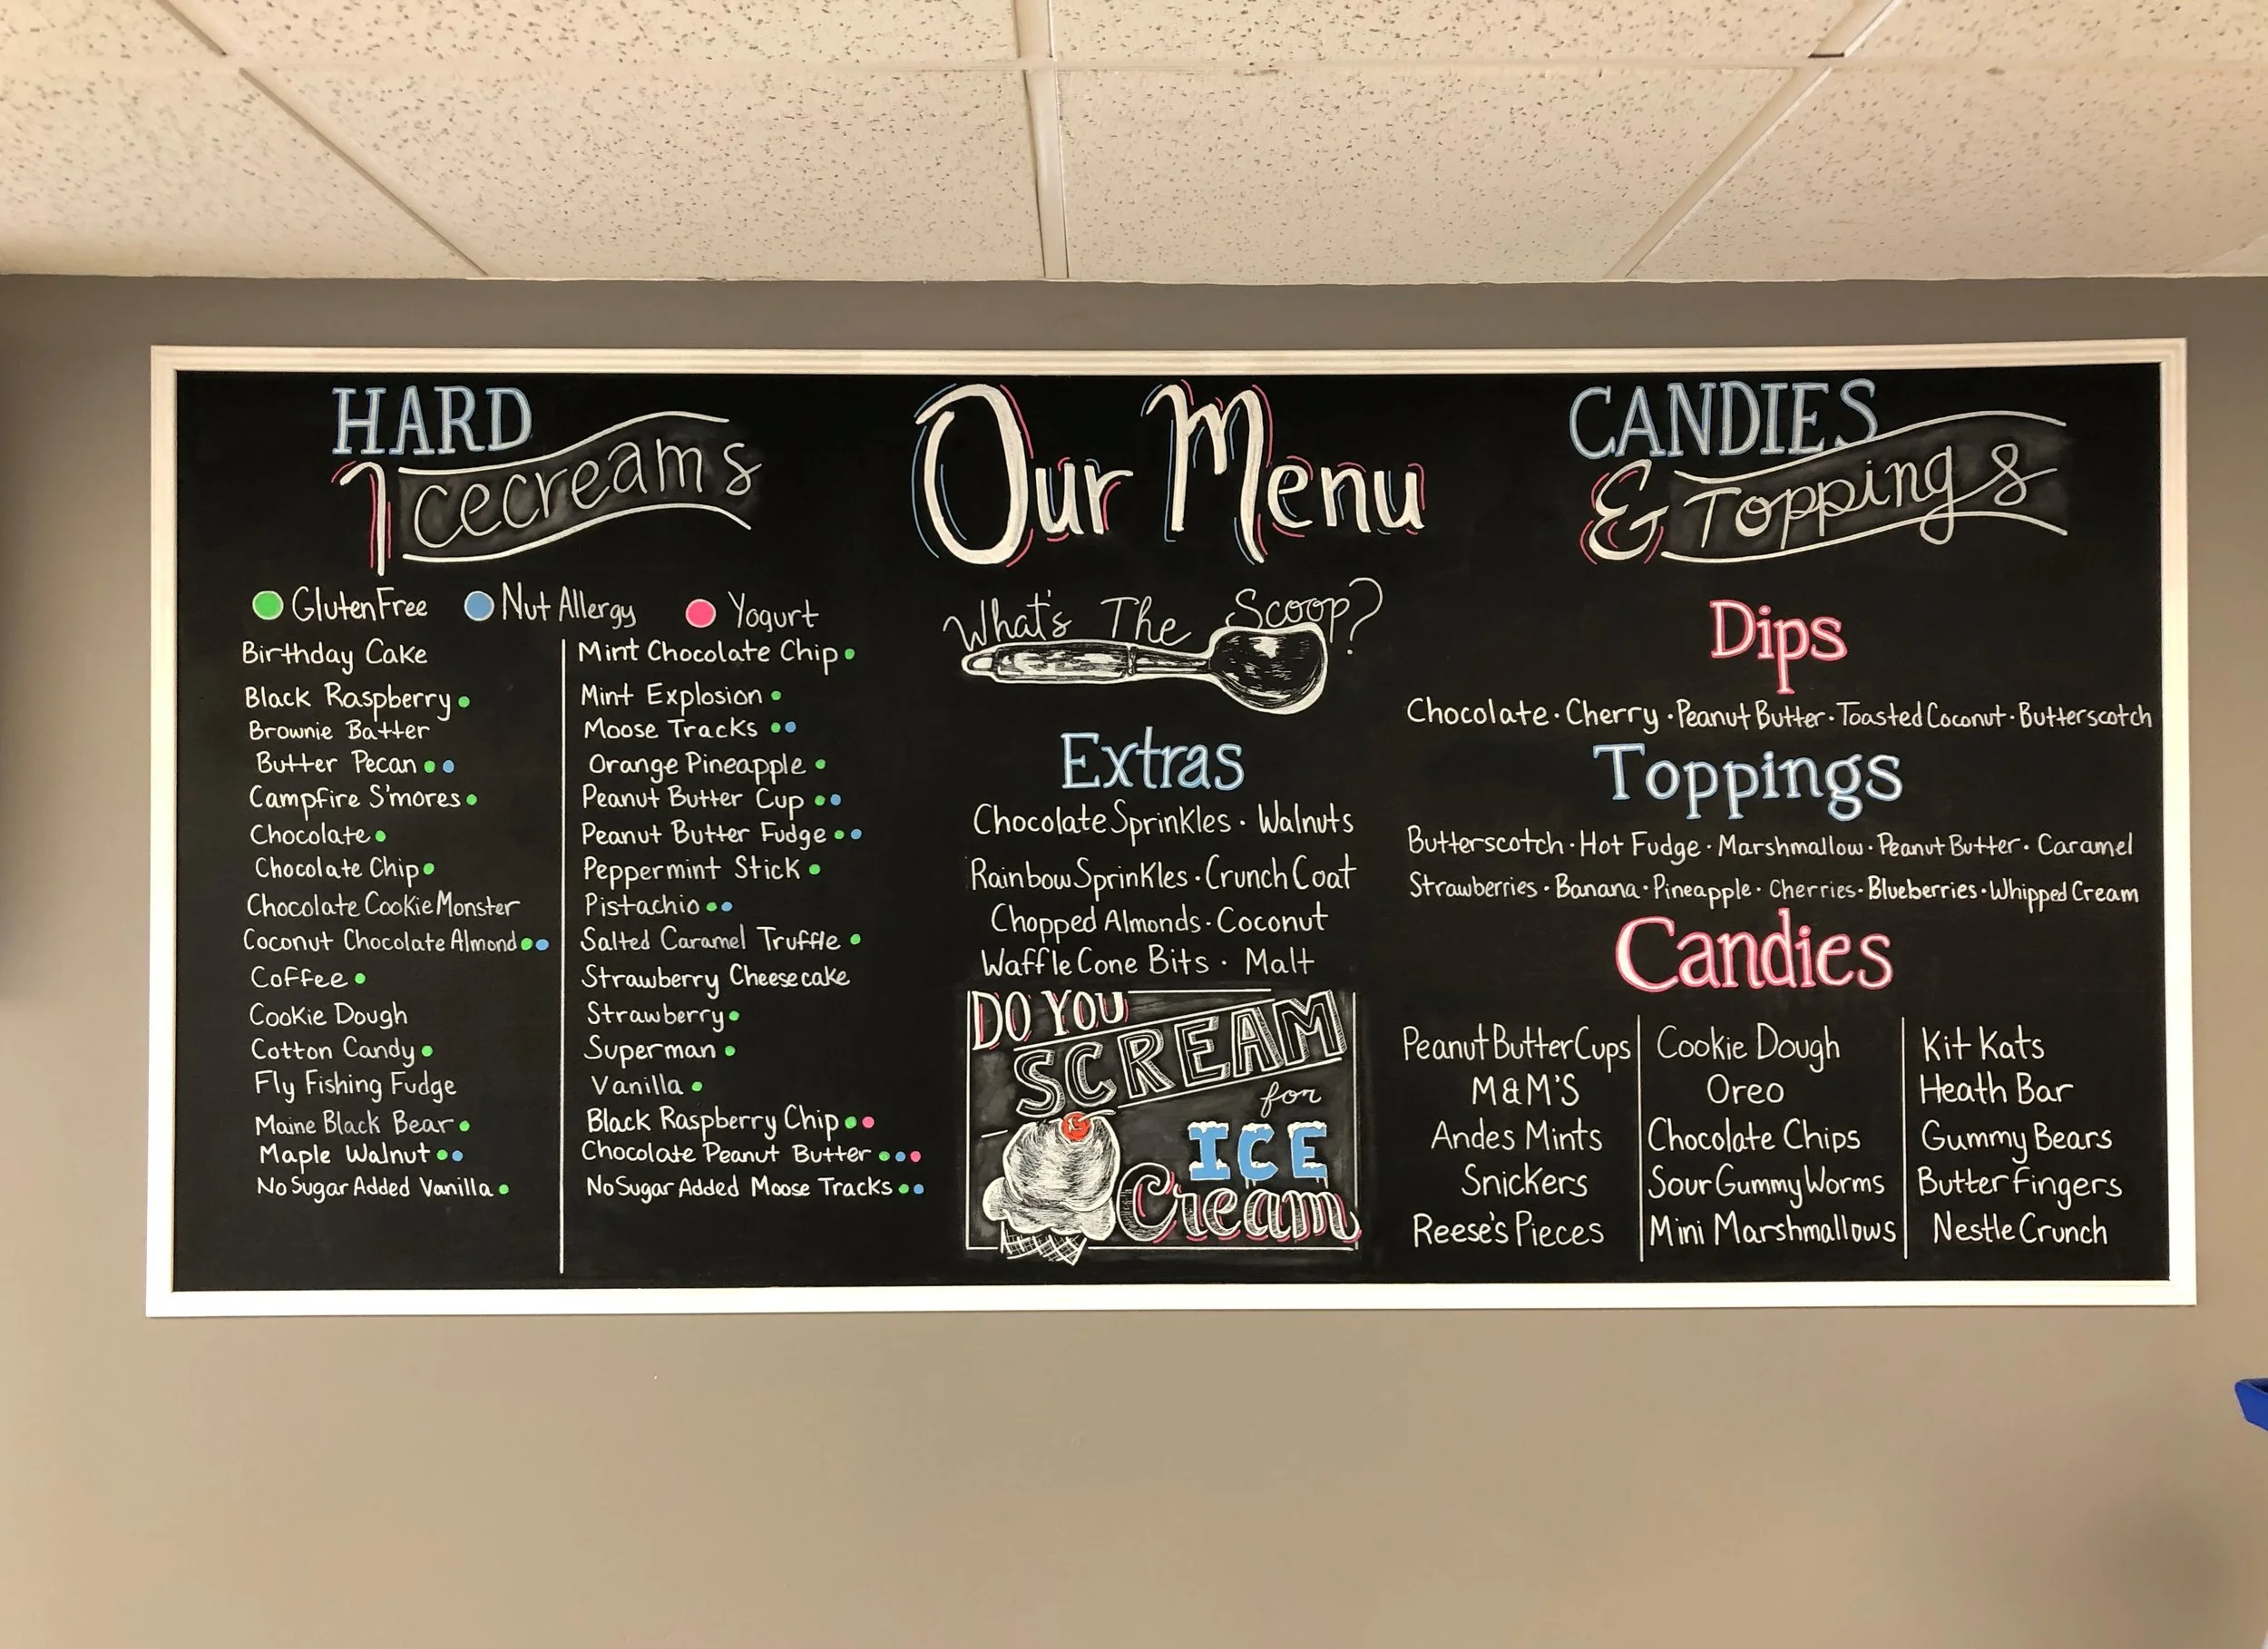 HARD
Icecreams
Gluten Free Nut Allergy Yogurt
Birthday Cake
Black Raspberry
Brownie Batter
Butter Pecan
Campfire S'mores
Chocolate
Chocolate Chip
Chocolate Cookie Monster
Coconut Chocolate Almond
Coffee
Cookie Dough
Cotton Candy
Fly Fishing Fudge
Maine Black Bear
Maple Walnut
No Sugar Added Vanilla
Mint Chocolate Chip
Mint Explosion
Moose Tracks
Orange Pineapple
Peanut Butter Cup
Peanut Butter Fudge
Peppermint Stick
Pistachio
Salted Caramel Truffle
Strawberry Cheesecake
Strawberry
Superman
Vanilla
Black Raspberry Chip
Chocolate Peanut Butter
No Sugar Added Moose Tracks
Our Menu
What's The Scoop?
Extras
Chocolate Sprinkles · Walnuts
Rainbow Sprinkles · Crunch Coat
Chopped Almonds · Coconut
Waffle Cone Bits · Malt
DO YOU
SCREAM
for
ICE
Cream
CANDIES
& Toppings
Dips
Chocolate · Cherry · Peanut Butter · Toasted Coconut · Butterscotch
Toppings
Butterscotch · Hot Fudge · Marshmallow · Peanut Butter · Caramel
Strawberries · Banana · Pineapple · Cherries · Blueberries · Whipped Cream
Candies
Peanut Butter Cups
M&M'S
Andes Mints
Snickers
Reese's Pieces
Cookie Dough
Oreo
Chocolate Chips
Sour Gummy Worms
Mini Marshmallows
Kit Kats
Heath Bar
Gummy Bears
Butter Fingers
Nestle Crunch